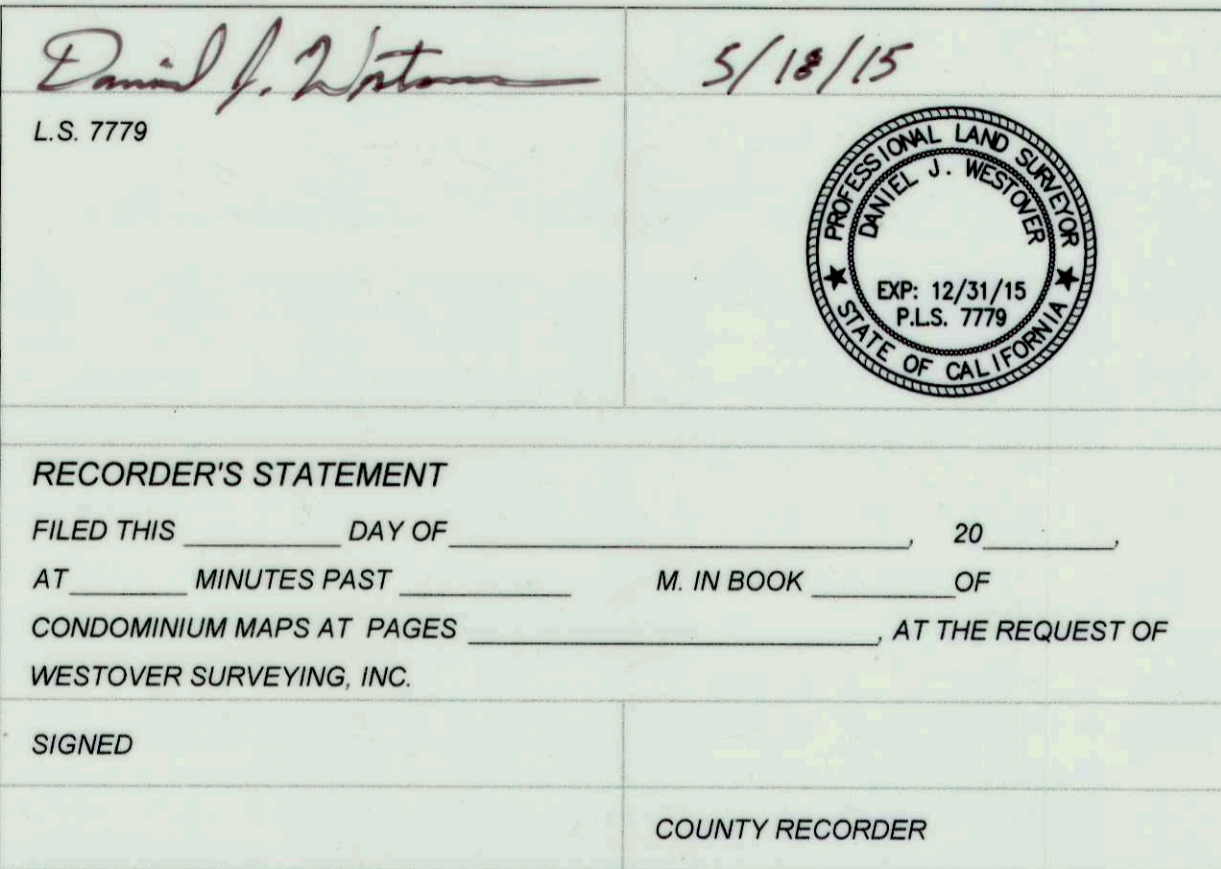 Daniel J. Westover 5/18/15
L.S. 7779
PROFESSIONAL LAND SURVEYOR
DANIEL J. WESTOVER
EXP: 12/31/15
P.L.S. 7779
STATE OF CALIFORNIA
RECORDER'S STATEMENT
FILED THIS __________ DAY OF ______________________________, 20_________,
AT ________ MINUTES PAST ___________ M. IN BOOK _________ OF
CONDOMINIUM MAPS AT PAGES __________________________, AT THE REQUEST OF
WESTOVER SURVEYING, INC.
SIGNED
COUNTY RECORDER